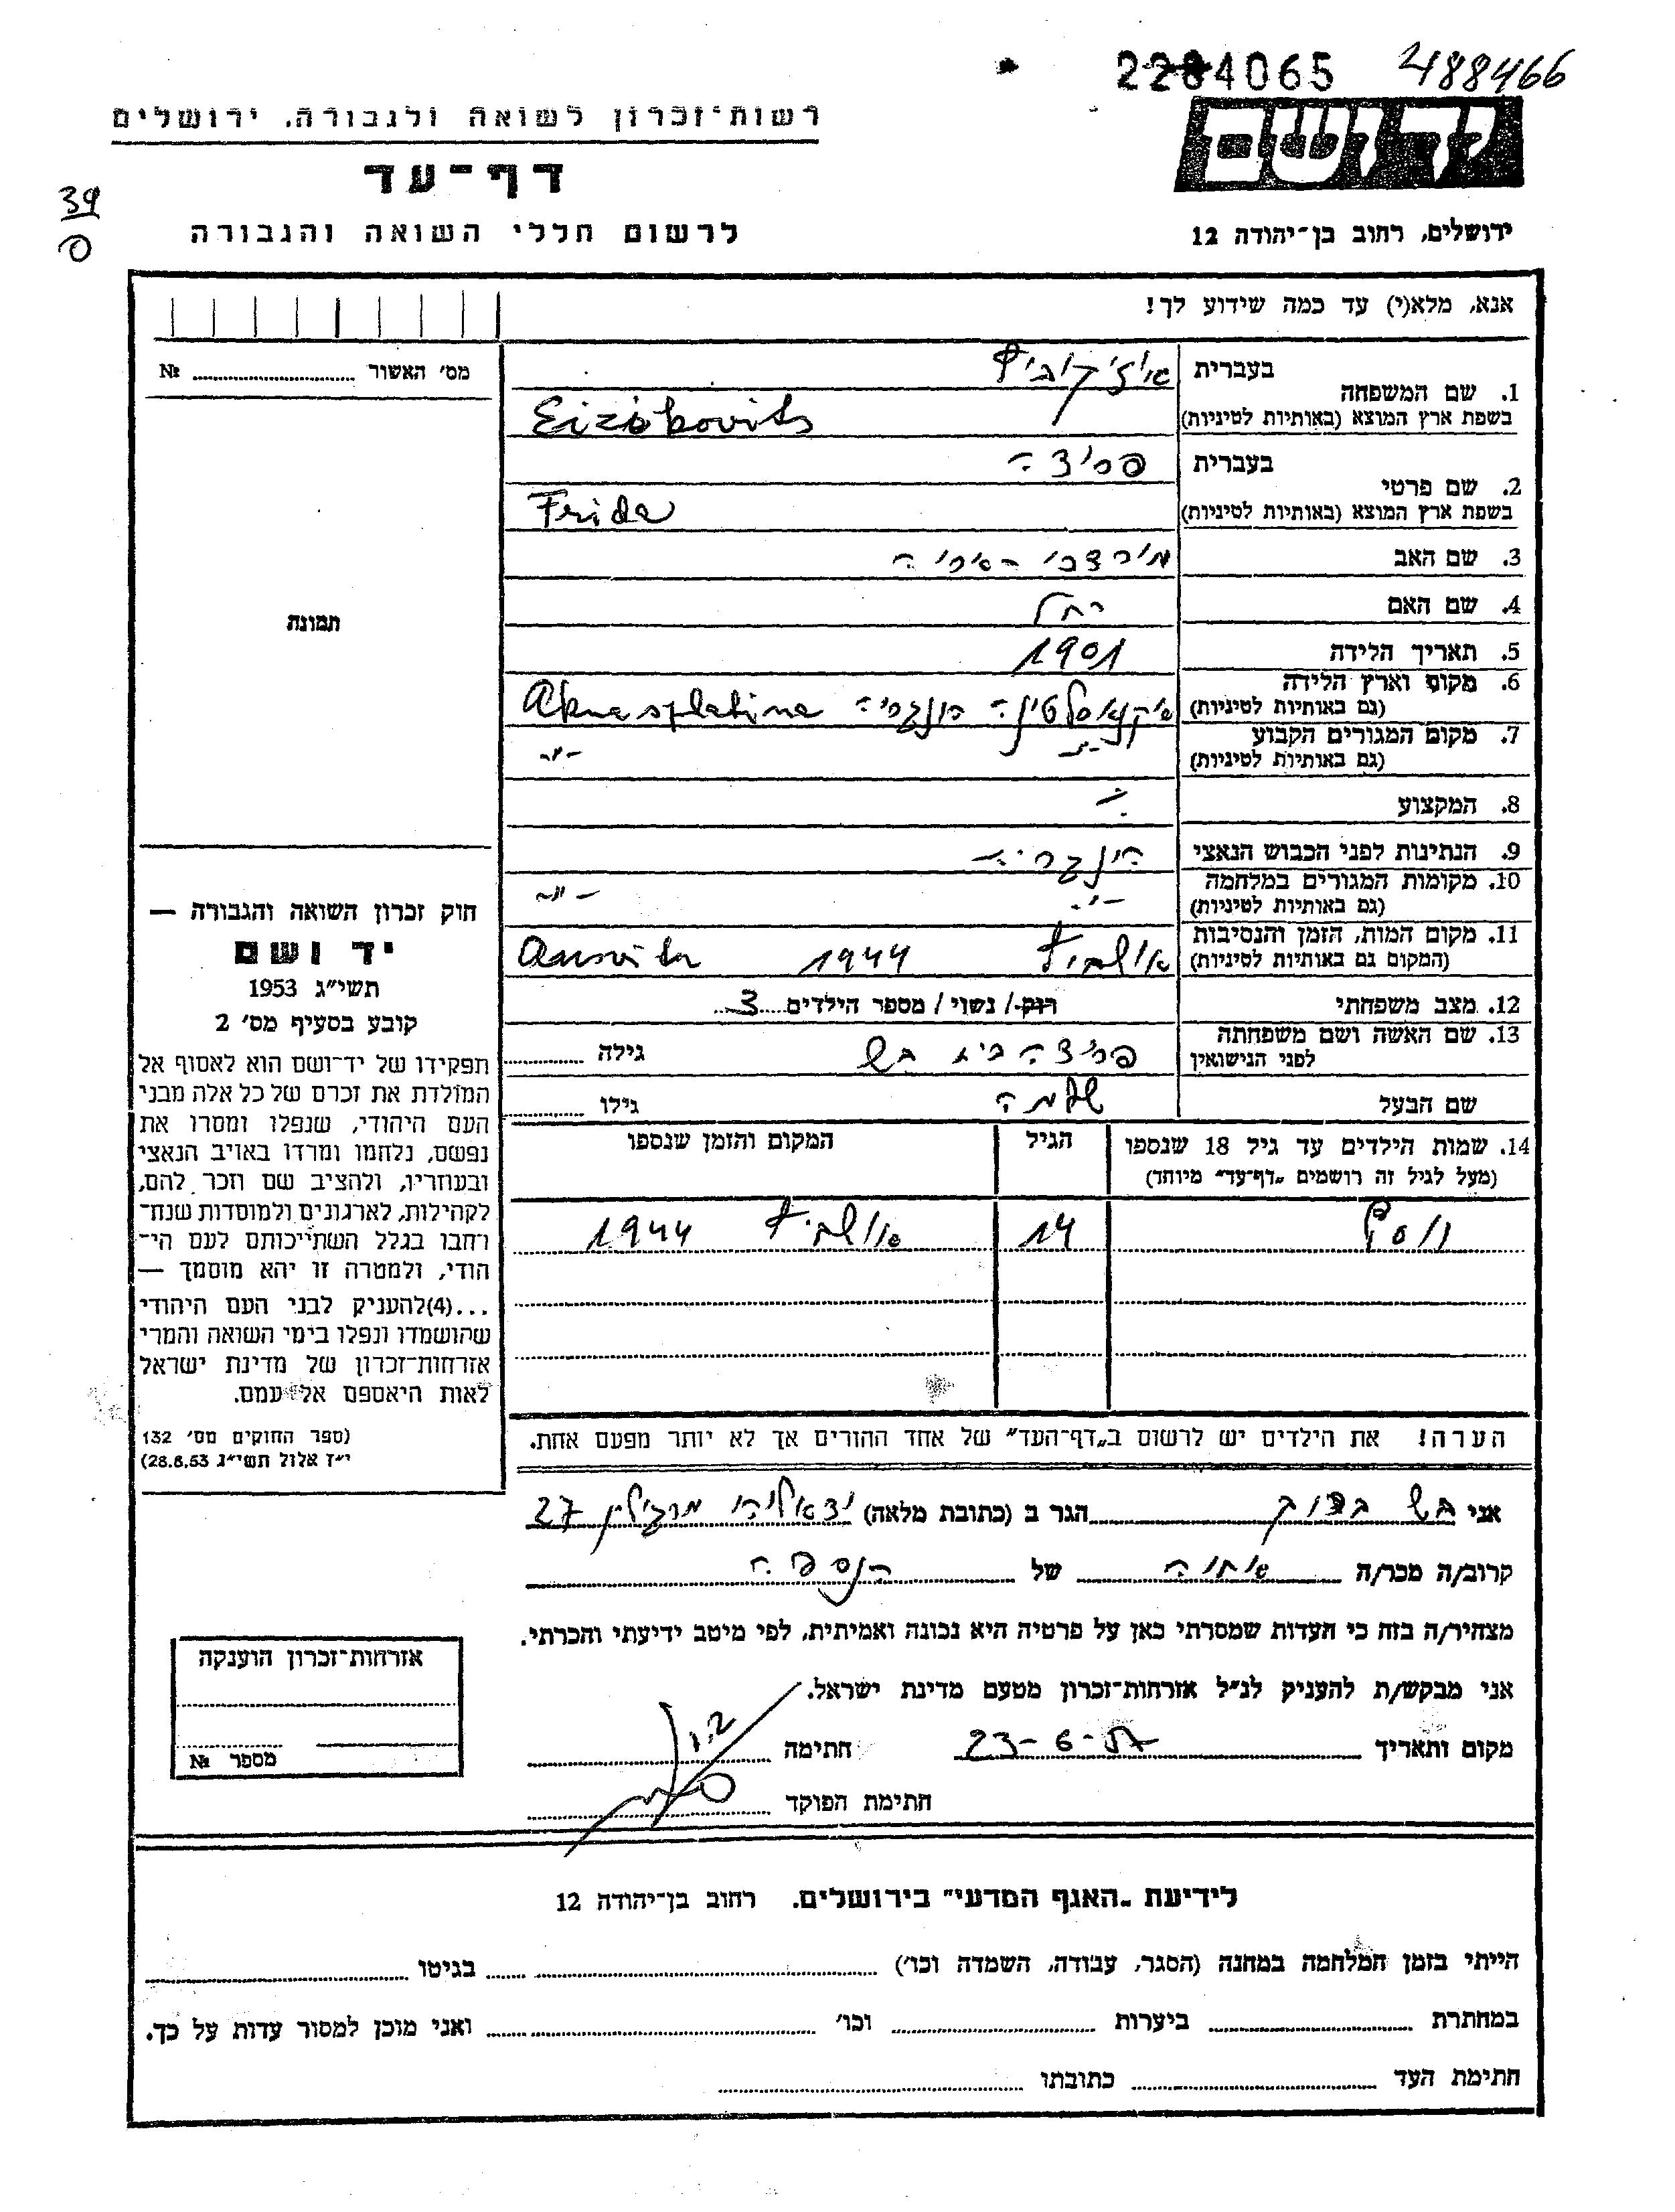 2284065 488466
רשות־זכרון לשואה ולגבורה, ירושלים
ידושם
דף־עד
39
לרשום חללי השואה והגבורה
ירושלים, רחוב בן־יהודה 12
אנא, מלא(י) עד כמה שידוע לך!
מס׳ האשור № 
1. שם המשפחה בעברית איזיקוביץ
בשפת ארץ המוצא (באותיות לטיניות) Eizikovits
2. שם פרטי בעברית פרידה
בשפת ארץ המוצא (באותיות לטיניות) Frida
3. שם האב
תמונה
4. שם האם רחל
5. תאריך הלידה 1901
6. מקום וארץ הלידה
(גם באותיות לטיניות) Aknasplatina הונגריה
7. מקום המגורים הקבוע
(גם באותיות לטיניות) -״- -״-
8. המקצוע
9. הנתינות לפני הכבוש הנאצי הונגריה
10. מקומות המגורים במלחמה
(גם באותיות לטיניות) -״- -״-
11. מקום המות, הזמן והנסיבות
(המקום גם באותיות לטיניות) אושביץ 1944
12. מצב משפחתי רוק / נשוי / מספר הילדים 3
13. שם האשה ושם משפחתה
לפני הנישואין פרידה בית בש גילה
שם הבעל שלמה גילו
14. שמות הילדים עד גיל 18 שנספו
(מעל לגיל זה רושמים „דף־עד״ מיוחד)
הגיל
המקום והזמן שנספו
יוסף 14 אושביץ 1944
הערה! את הילדים יש לרשום ב„דף־העד״ של אחד ההורים אך לא יותר מפעם אחת.
חוק זכרון השואה והגבורה —
יד ושם
תשי״ג 1953
קובע בסעיף מס׳ 2
תפקידו של יד־ושם הוא לאסוף אל
המולדת את זכרם של כל אלה מבני
העם היהודי, שנפלו ומסרו את
נפשם, נלחמו ומרדו באויב הנאצי
ובעוזריו, ולהציב שם וזכר להם,
לקהילות, לארגונים ולמוסדות שנח־
רחבו בגלל השתייכותם לעם הי־
הודי, ולמטרה זו יהא מוסמך —
...(4)להעניק לבני העם היהודי
שהושמדו ונפלו בימי השואה והמרי
אזרחות־זכרון של מדינת ישראל
לאות היאספם אל עמם.
(ספר החוקים מס׳ 132
י״ז אלול תשי״ג 28.8.53)
אני בש ברוך הגר ב (כתובת מלאה) 27
קרוב/ה מכר/ה אחיה של הנספה
מצהיר/ה בזה כי העדות שמסרתי כאן על פרטיה היא נכונה ואמיתית, לפי מיטב ידיעתי והכרתי.
אני מבקש/ת להעניק לנ״ל אזרחות־זכרון מטעם מדינת ישראל.
מקום ותאריך 23-6-57 חתימה
חתימת הפוקד
אזרחות־זכרון הוענקה
מספר №
לידיעת „האגף המדעי״ בירושלים. רחוב בן־יהודה 12
הייתי בזמן המלחמה במחנה (הסגר, עבודה, השמדה וכו׳) בגיטו
במחתרת ביערות וכו׳ ואני מוכן למסור עדות על כך.
חתימת העד כתובתו